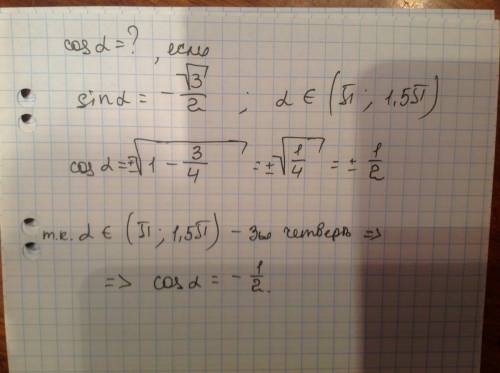 cos α = ? , если
sin α = -√3/2 ; α ∈ (π ; 1,5π)
cos α = ±√(1 - 3/4) = ±√(1/4) = ± 1/2
т.к. α ∈ (π ; 1,5π) - 3ья четверть =>
=> cos α = - 1/2.